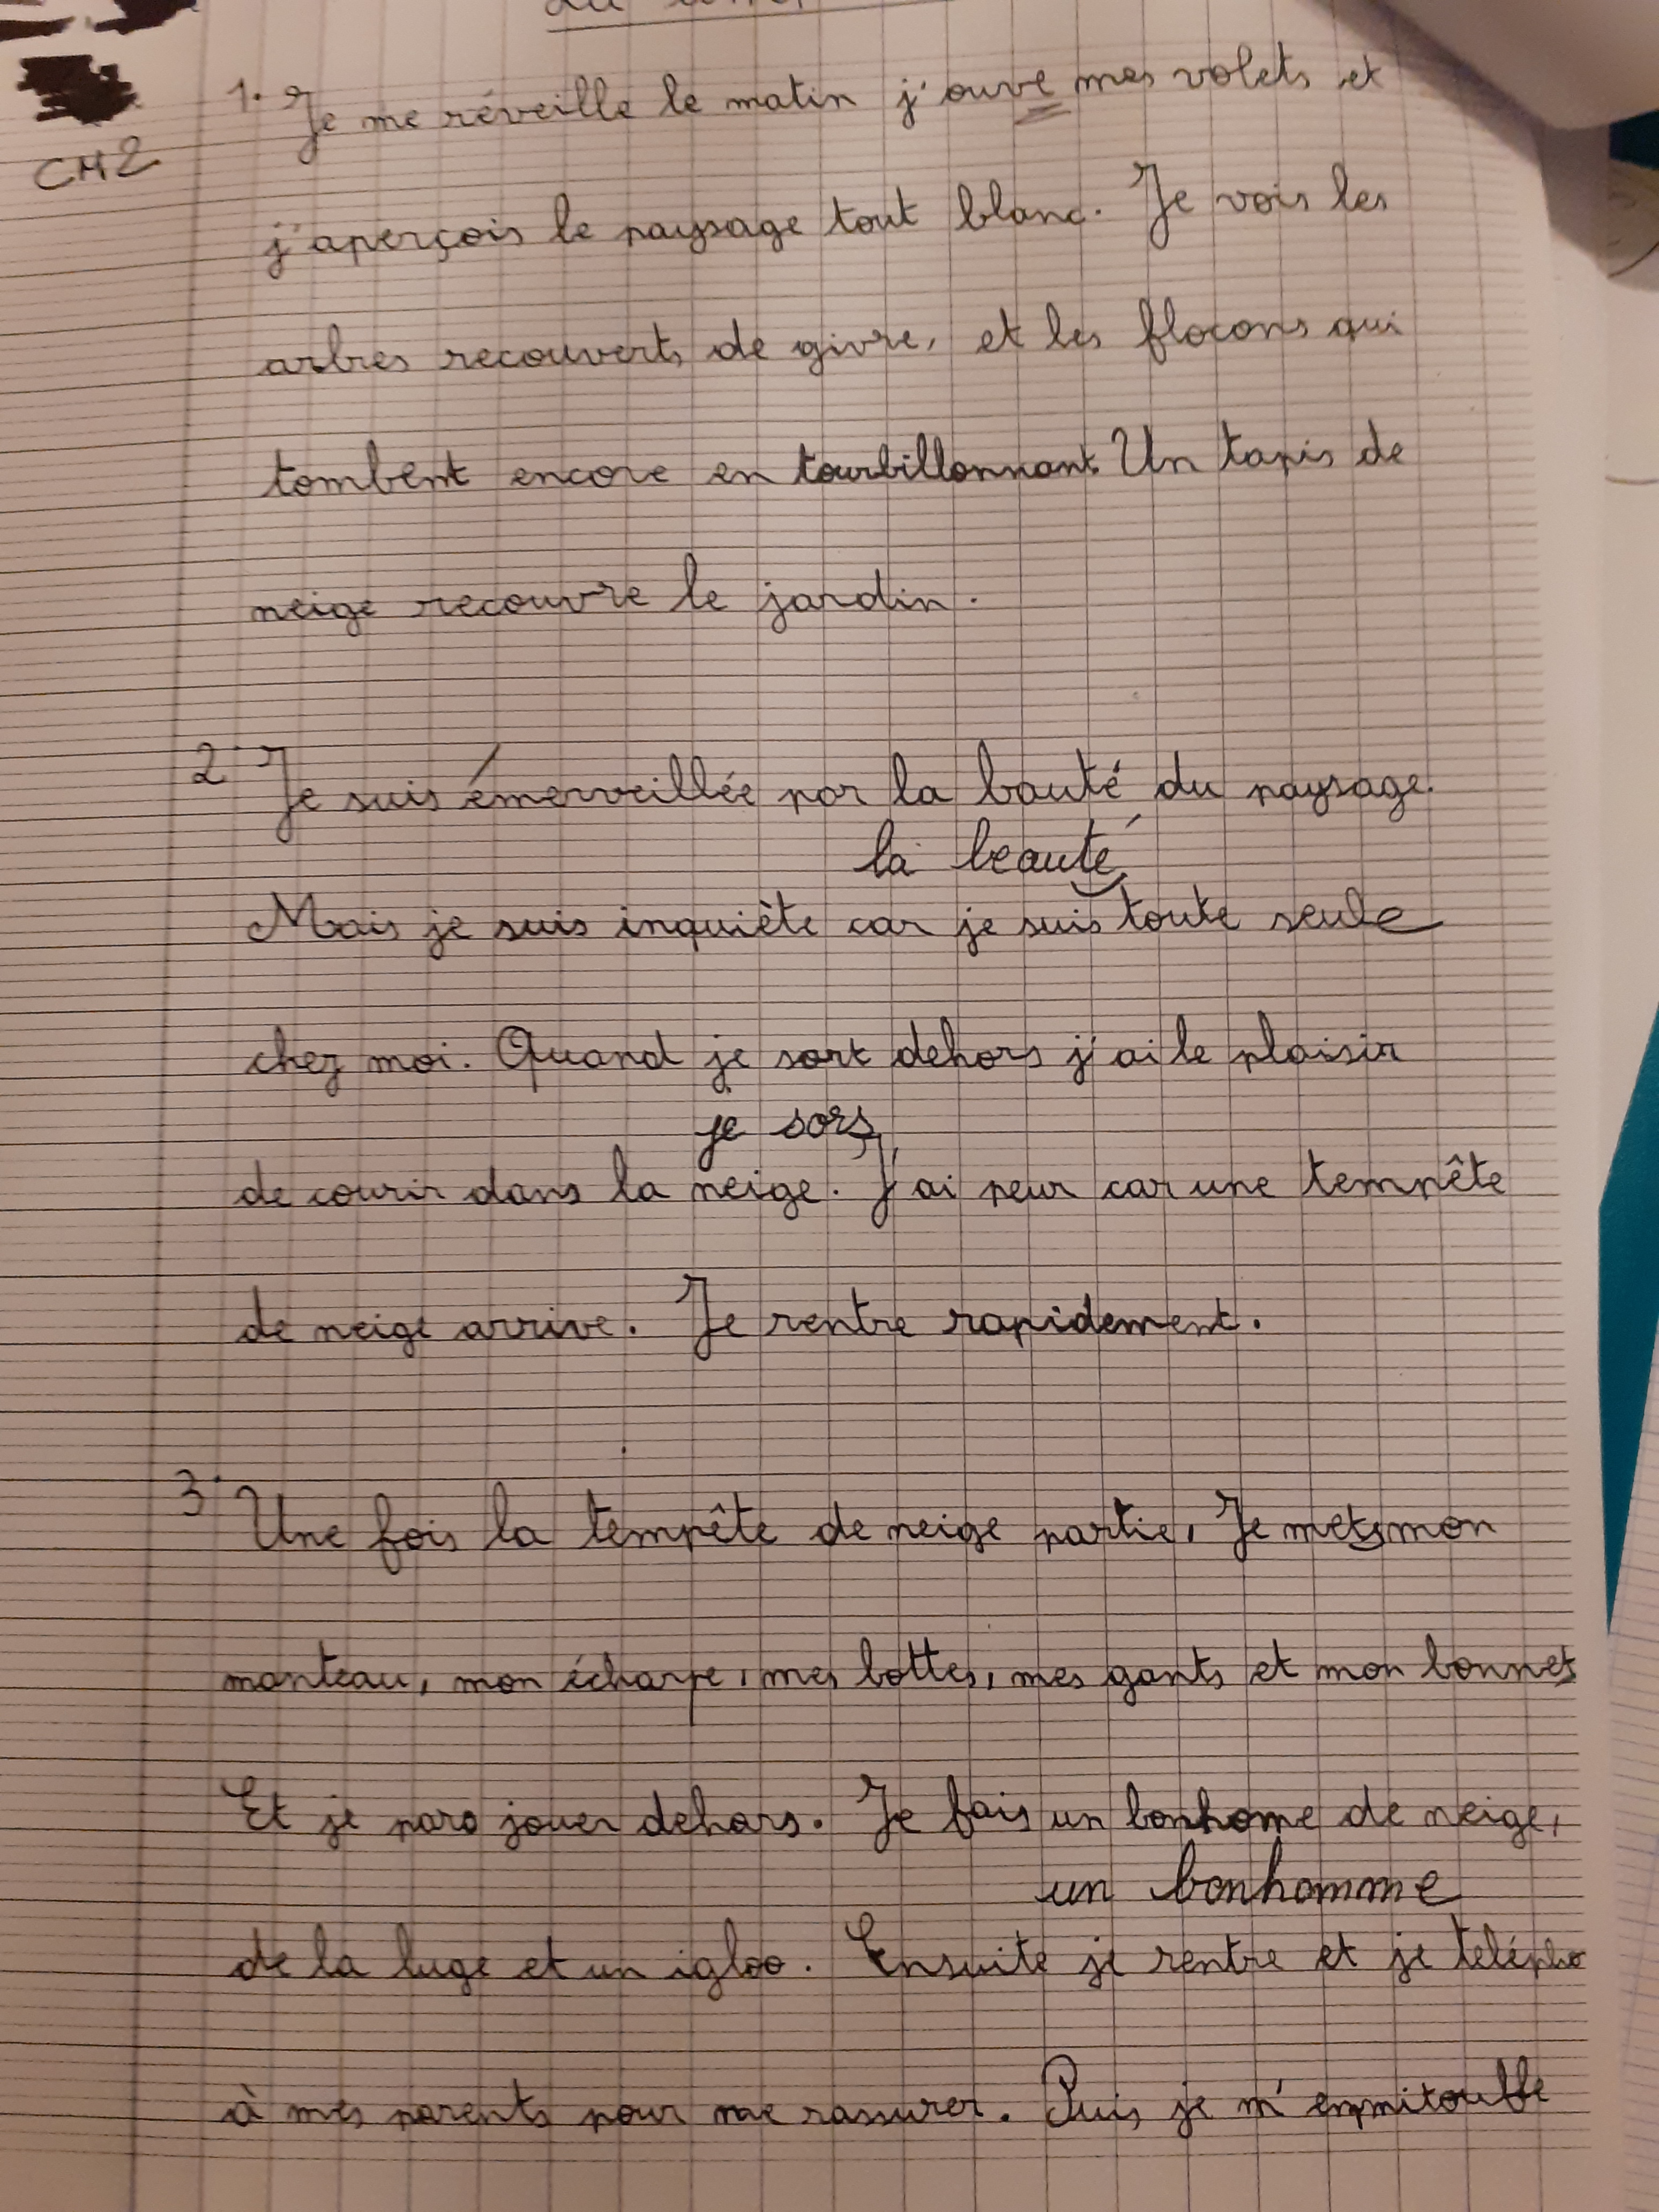 CM2
1. Je me réveille le matin j'ouve mes volets et
j'aperçois le paysage tout blanc. Je vois les
arbres recouverts de givre, et les flocons qui
tombent encore en tourbillonnant. Un tapis de
neige recouvre le jardin.
2. Je suis émerveillée par la bauté du paysage.
la beauté
Mais je suis inquiète car je suis toute seule
chez moi. Quand je sort dehors j'ai le plaisir
je sors
de courir dans la neige. J'ai peur car une tempête
de neige arrive. Je rentre rapidement.
3. Une fois la tempête de neige partie, Je mets mon
manteau, mon écharpe, mes bottes, mes gants et mon bonnet
Et je pars jouer dehors. Je fais un bonhome de neige,
un bonhomme
de la luge et un igloo. Ensuite je rentre et je télépho
à mes parents pour me rassurer. Puis je m'enmitouffe